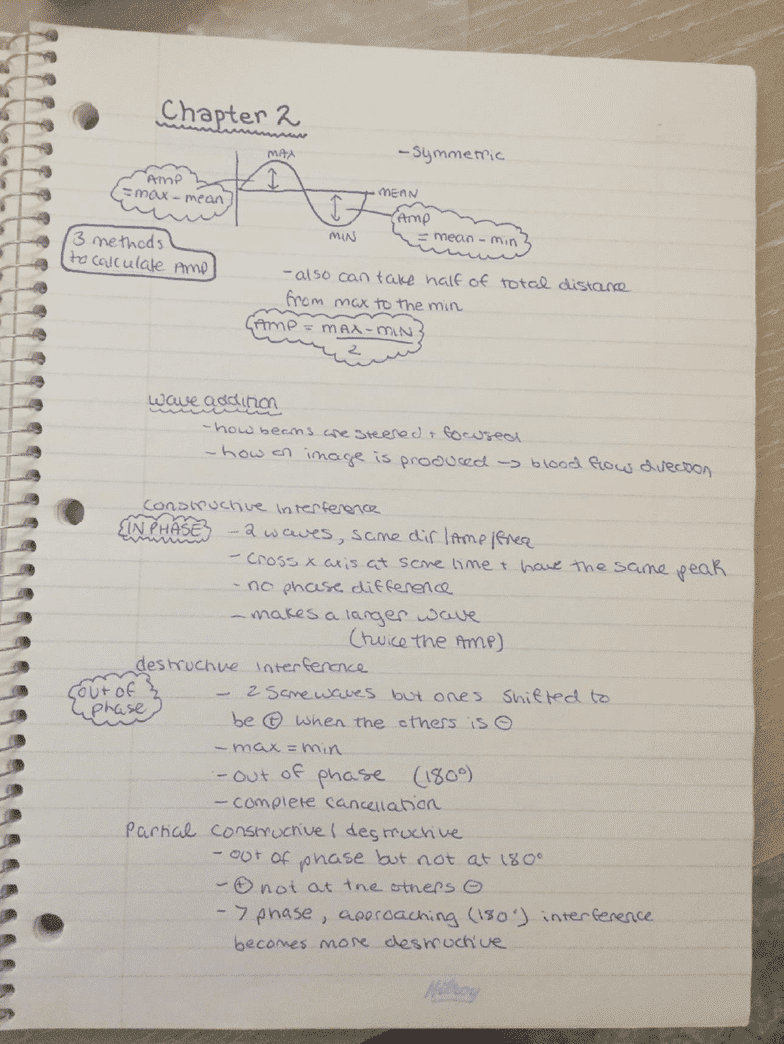 Chapter 2
MAX
- Symmetric
AMP
= max - mean
MEAN
AMP
= mean - min
MIN
3 methods
to calculate AMP
- also can take half of total distance
from max to the min
AMP = MAX - MIN
2
wave addition
- how beams are steered + focused
- how an image is produced -> blood flow direction
constructive interference
IN PHASE
- 2 waves, same dir/AMP/freq
- cross x axis at same time + have the same peak
- no phase difference
- makes a larger wave
(twice the AMP)
destructive interference
out of
phase
- 2 same waves but ones shifted to
be ⊕ when the others is ⊖
- max = min
- out of phase (180°)
- complete cancellation
Partial constructive/destructive
- out of phase but not at 180°
- ⊕ not at the others ⊖
- > phase, approaching (180°) interference
becomes more destructive
Hilroy